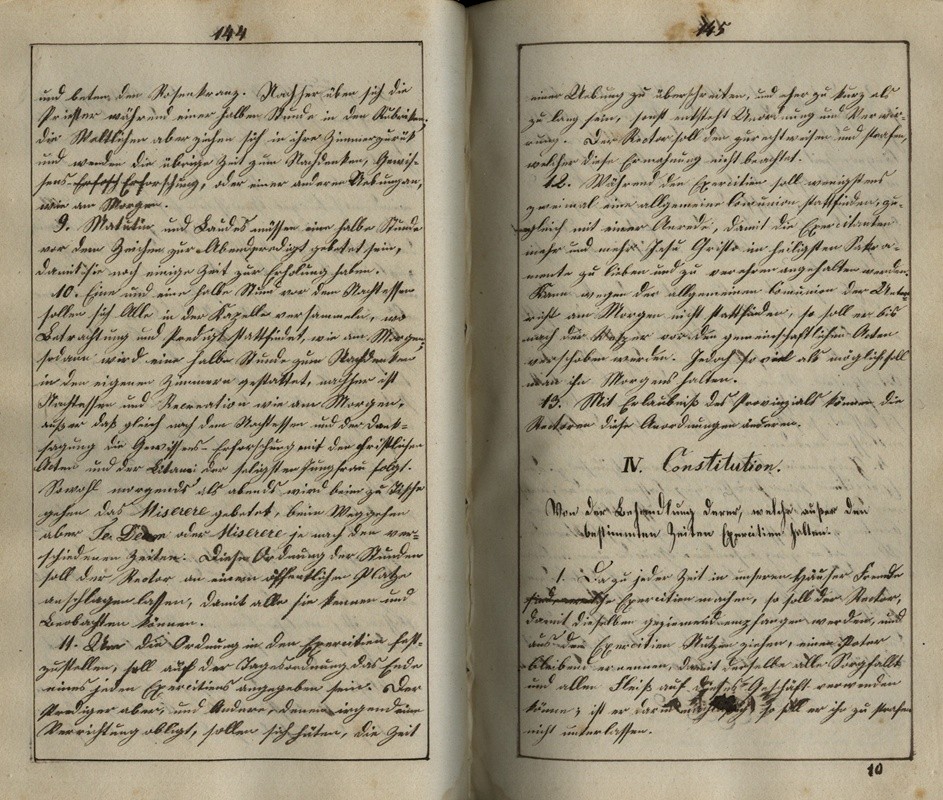 144
und beten den Rosenkranz. Nachher üben sich die
Priester während einer halben Stunde in den Rubriken,
die Weltlichen aber ziehen sich in ihre Zimmer zurück
und wenden die übrige Zeit zum Nachdenken, Gewis-
sens Erforschung, oder einer anderen Uebung an,
wie am Morgen.
9. Matutin und Laudes müssen eine halbe Stunde
vor dem Zeichen zur Abendpredigt gebetet sein,
damit sie noch einige Zeit zur Erholung haben.
10. Eine und eine halbe Stund vor dem Nachtessen
sollen sich Alle in der Kapelle versammeln, wo
Betrachtung und Predigt stattfindet, wie am Morgen,
sodann wird eine halbe Stunde zum Nachdenken
in den eigenen Zimmern gestattet, nachher ist
Nachtessen und Recreation wie am Morgen,
außer daß gleich nach dem Nachtessen und der Dank-
sagung die Gewissens-Erforschung mit den christlichen
Acten und der Litanei der seligsten Jungfrau folgt.
Sowohl morgends als abends wird beim zu Tische
gehen das Miserere gebetet, beim Weggehen
aber Te Deum oder Miserere je nach den ver-
schiedenen Zeiten. Diese Ordnung der Stunden
soll der Rector an einem öffentlichen Platze
anschlagen lassen, damit alle sie kennen und
beobachten können.
11. Um die Ordnung in den Exercitien fest-
zustellen, soll auf der Tagesordnung das Ende
eines jeden Exercitiums angegeben sein. Der
Prediger aber, und Andere, denen irgend eine
Verrichtung obligt, sollen sich hüten, die Zeit
145
einer Uebung zu überschreiten, und eher zu kurz als
zu lang sein, sonst entsteht Unordnung und Verwir-
rung. Der Rector soll den zurechtweisen und strafen,
welcher diese Ermahnung nicht beachtet.
12. Während den Exercitien soll wenigstens
zweimal eine allgemeine Comunion stattfinden, zu-
gleich mit einer Anrede, damit die Exercitanten
mehr und mehr Jesu Christo im heiligsten Sakra-
mente zu lieben und zu verehren angehalten werden.
Kann wegen der allgemeinen Comunion der Unter-
richt am Morgen nicht stattfinden, so soll er bis
nach der Vesper vor den gemeinschaftlichen Acten
verschoben werden. Jedoch so viel als möglich soll
man ihn Morgens halten.
13. Mit Erlaubniß des Provinzials können die
Rectoren diese Anordnungen änderen.
IV. Constitution.
Von der Behandlung derer, welche außer den
bestimmten Zeiten Exercitien halten.
1. Da zu jeder Zeit in unseren Häuser Fremde
Exercitien machen, so soll der Rector,
damit dieselben geziemend empfangen werden, und
aus den Exercitien Nutzen ziehen, einen Pater
bleibend ernennen, damit derselbe alle Sorgfallt
und allen Fleiß auf dieses Geschäft verwenden
könne; ist er darin so soll er ihn zu strafen
nicht unterlassen.
10